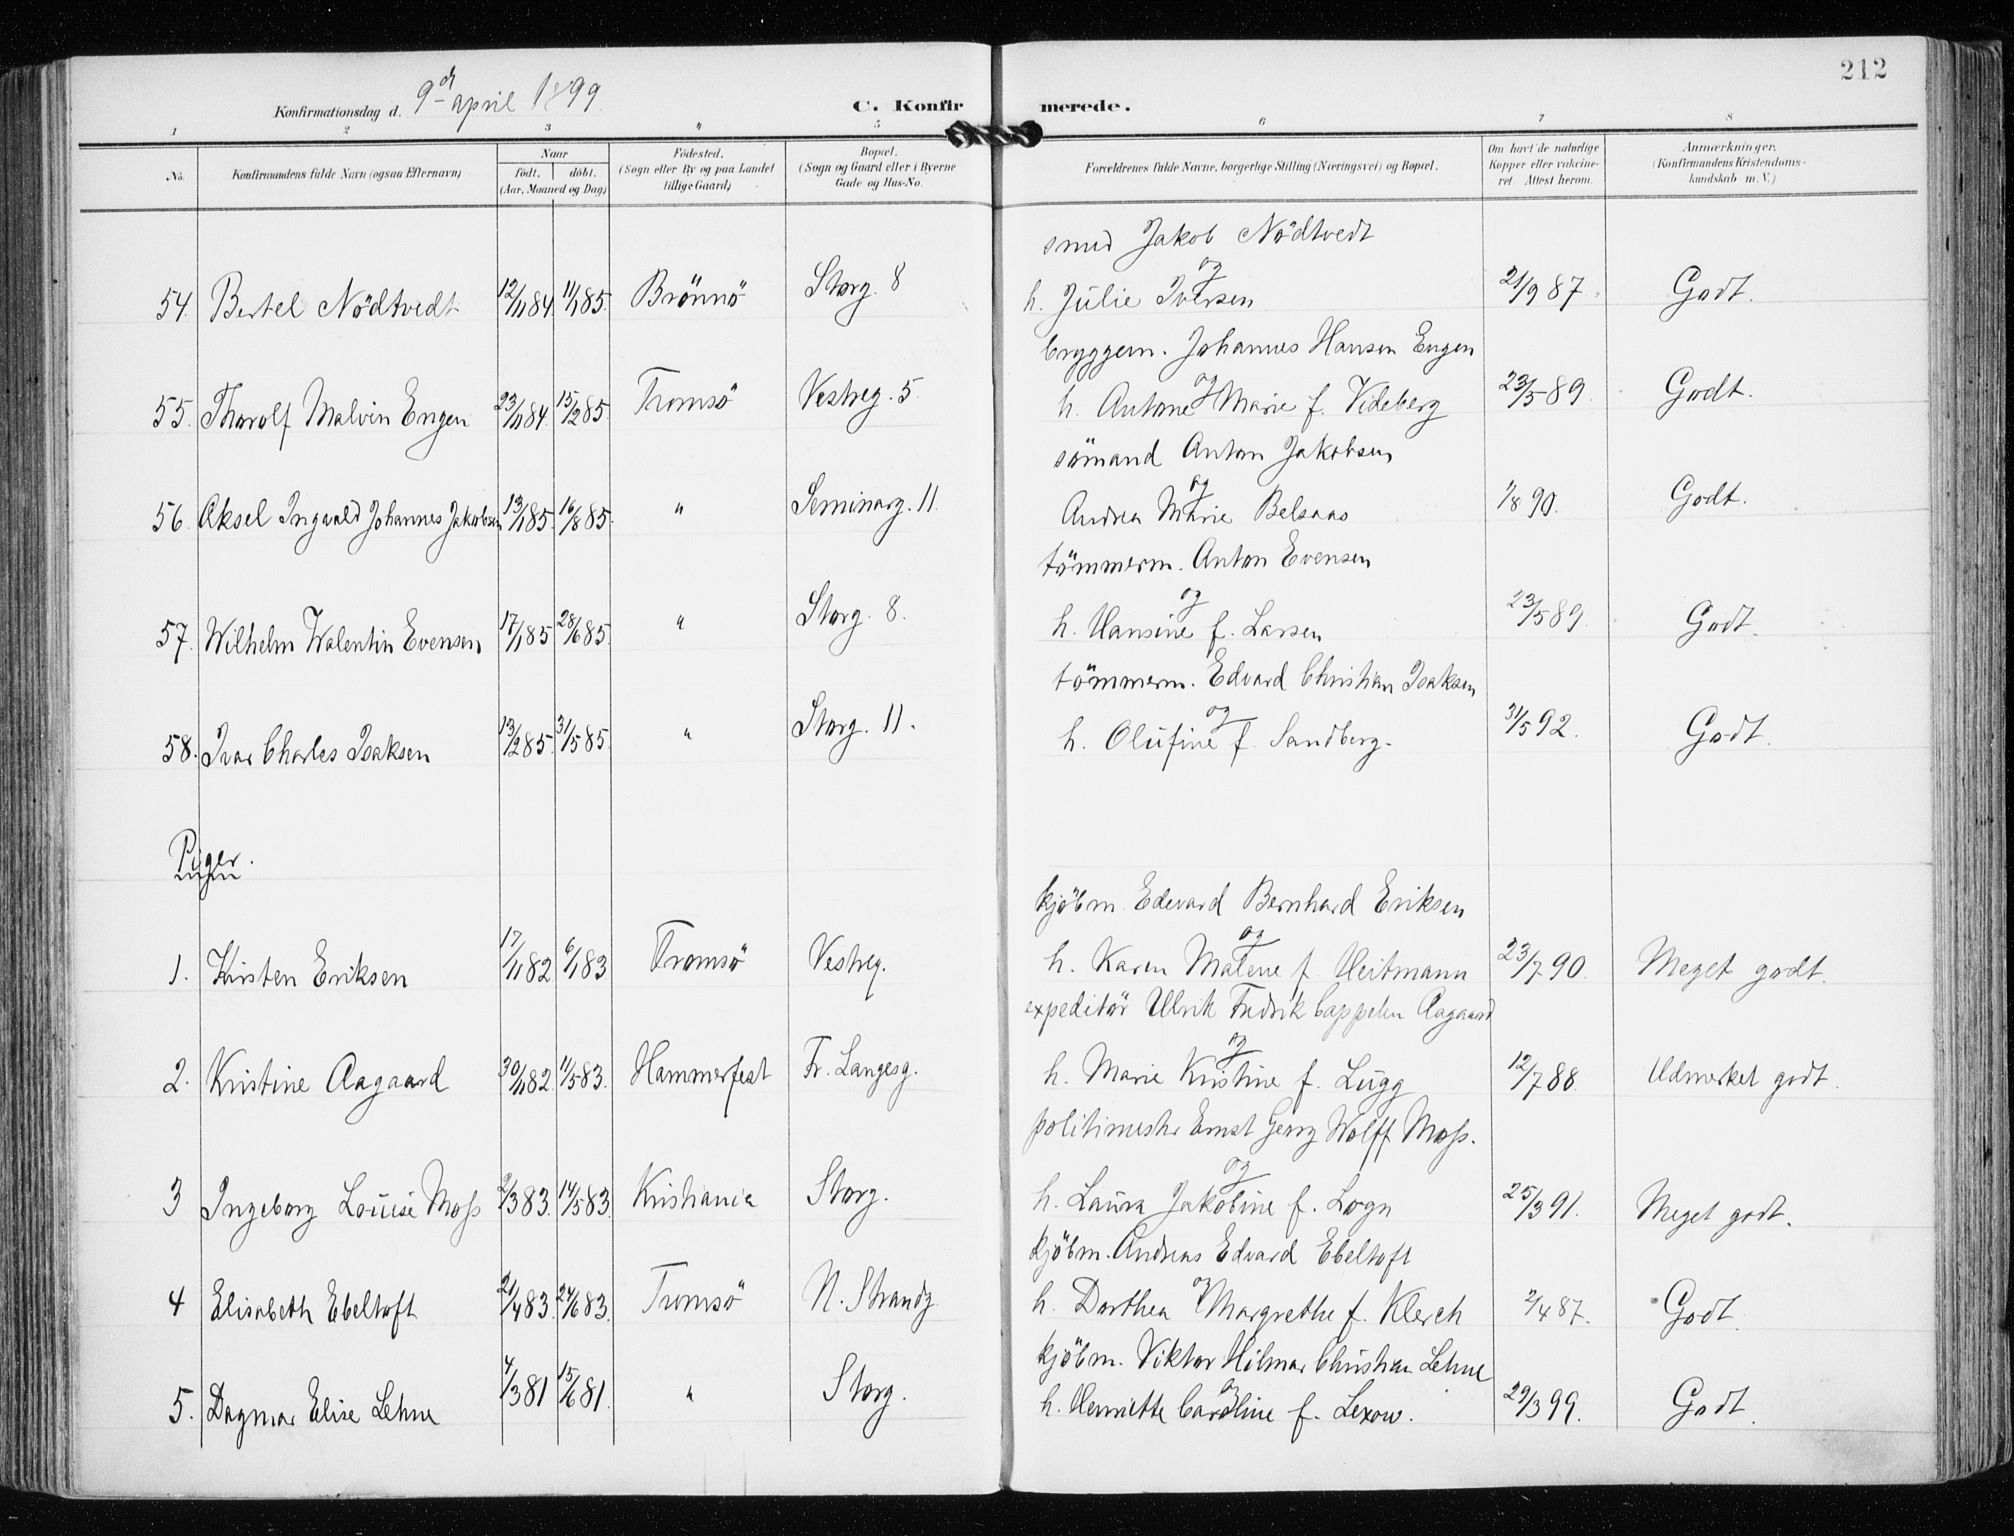 212
Konfirmationsdag d. 9de april 1899.
C. Konfirmerede.
1 2 3 4 5 6 7 8
No. Konfirmandens fulde Navn (ogsaa Efternavn) Naar født. døbt. (Aar, Maaned og Dag) Fødested. (Sogn eller By og paa Landet tillige Gaard) Bopæl. (Sogn og Gaard eller i Byerne Gade og Hus-No. Forældrenes fulde Navne, borgerlige Stilling (Næringsvei) og Bopæl. Om havt de naturlige Kopper eller vakcineret. Attest herom. Anmærkninger. (Konfirmandens Kristendomskundskab m. V.)
smed Jakob Nödtvedt
og
54. Bertel Nödtvedt 12/11 84. 11/1 85. Brönnö Storg. 8 h. Julie Iversen 21/9 87. Godt.
bryggem. Johannes Hansen Engen
og
55. Thorolf Malvin Engen 23/11 84. 15/2 85. Tromsö Vestreg. 5. h. Antone Marie f. Videberg 23/5 89. Godt.
sömand Anton Jakobsen
og
56. Aksel Ingvald Johannes Jakobsen 13/1 85. 16/8 85. " Seminarg. 11. Andrea Marie Belsaas 1/8 90. Godt.
tömmerm. Anton Evensen
og
57. Wilhelm Walentin Evensen 17/1 85 28/6 85. " Storg. 8. h. Hansine f. Larsen 23/5 89. Godt.
tömmerm. Edvard Christian Isaksen
og
58. Ivar Charles Isaksen 13/2 85. 31/5 85. " Storg. 11. h. Olufine f. Sandberg. 31/5 92. Godt.
Piger.
kjöbm. Edevard Bernhard Eriksen
og
1. Kirsten Eriksen 17/11 82 6/1 83 Tromsö Vestreg. h. Karen Malene f. Heitmann 23/7 90. Meget godt.
expeditör Ulrik Fredrik Cappelen Aagaard
og
2. Kristine Aagaard 30/11 82. 11/5 83. Hammerfest Fr. Langesg. h. Marie Kristine f. Lugg 12/7 88. Udmerket godt.
politimester Ernst Georg Wolff Moss.
og
3 Ingeborg Louise Moss 2/3 83. 14/5 83. Kristiania Storg. h. Laura Jakobine f. Logn 25/3 91. Meget godt.
kjöbm. Andreas Edvard Ebeltoft
og
4 Elisabeth Ebeltoft 21/4 83. 24/6 83. Tromsö N. Strandg. h. Dorthea Margrethe f. Klerch 2/4 87. Godt.
kjöbm. Viktor Hilmar Christian Lehne
og
5. Dagmar Elise Lehne 4/3 81 15/6 81. " Storg. h. Henriette Caroline f. Lexow. 29/3 99. Godt.